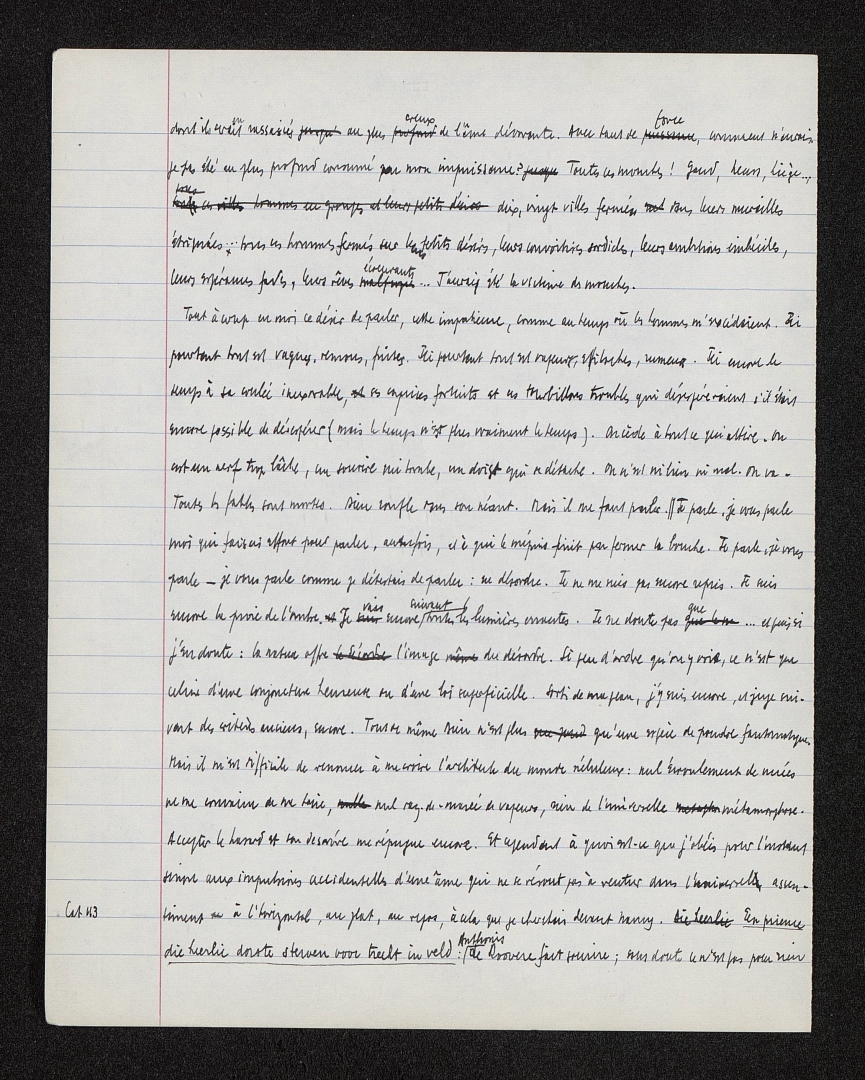 dont ils avaient rassasié jusqu' au plus profond creux de l'âme dévorante. Avec tant de puissance force, comment n'aurais-
je pas été au plus profond consumé par mon impuissance? jusque Toutes ces mouches! Gand, Liège...,
tous ces villes hommes en groupes et leurs petits désirs dix, vingt villes fermées sur leurs murailles
étriquées... tous ces hommes fermés sur les petits désirs, leurs convoitises sordides, leurs ambitions imbéciles,
leurs espérances fades, leurs rêves écœurants ... J'aurais été la victime de mouches.
Tout à coup en moi ce désir de parler, cette impatience, comme au temps où les hommes m'excédaient. Ici
pourtant tout est vagues, remous, fuites. Ici pourtant tout est vapeurs, effiloches, rumeur. Ici encore le
temps à sa coulée inexorable, et ses caprices fortuits et ces tourbillons troubles qui désespéreraient s'il était
encore possible de désespérer (mais le temps n'est plus vraiment le temps). On cède à tout ce qui attire. On
est un nerf trop lâche, un sourire qui tombe, un doigt qui se détache. On n'est ni bien ni mal. On va.
Toutes les fables sont mortes. Rien souffle dans son néant. Mais il me faut parler. // Je parle, je vous parle
moi qui faisais effort pour parler, autrefois, et à qui le mépris finit par fermer la bouche. Je parle, je vous
parle – je vous parle comme je détestais de parler: en désordre. Je ne me suis pas encore repris. Je suis
encore la proie de l'ombre. et Je suis vais encore suivant toutes les lumières errantes. Je ne doute pas que ... et puis si
j'en doute: la nature offre le désordre l'image même du désordre. Le peu d'ordre qu'on y voie, ce n'est que
celui d'une conjoncture heureuse ou d'une loi superficielle. Sorti de ma peau, j'y suis encore, et juge sui-
vant des critères anciens, encore. Tout de même Rien n'est plus qu'une espèce de poudre fantomatique.
Mais il m'est difficile de renoncer à me croire l'architecte du monde nébuleux: nul écroulement de nuées
ne me convainc de me taire, nulle nul raz-de-marée de vapeurs, rien de l'universelle métamorphose.
Accepter le hasard et son désœuvre me répugne encore. Et cependant à quoi est-ce que j'obéis pour l'instant
sinon aux impulsions accidentelles d'une âme qui ne se résout pas à rentrer dans l'universelle, assen-
timent à l'horizontal, au plat, au repos, à cela que je cherchais devant Nancy. die Leerlic En prience
Cat 43
die Leerlic dorste sterven voor trecht in veld: Anthonis De Roovere fait sourire; sans doute ce n'est pas pour rien